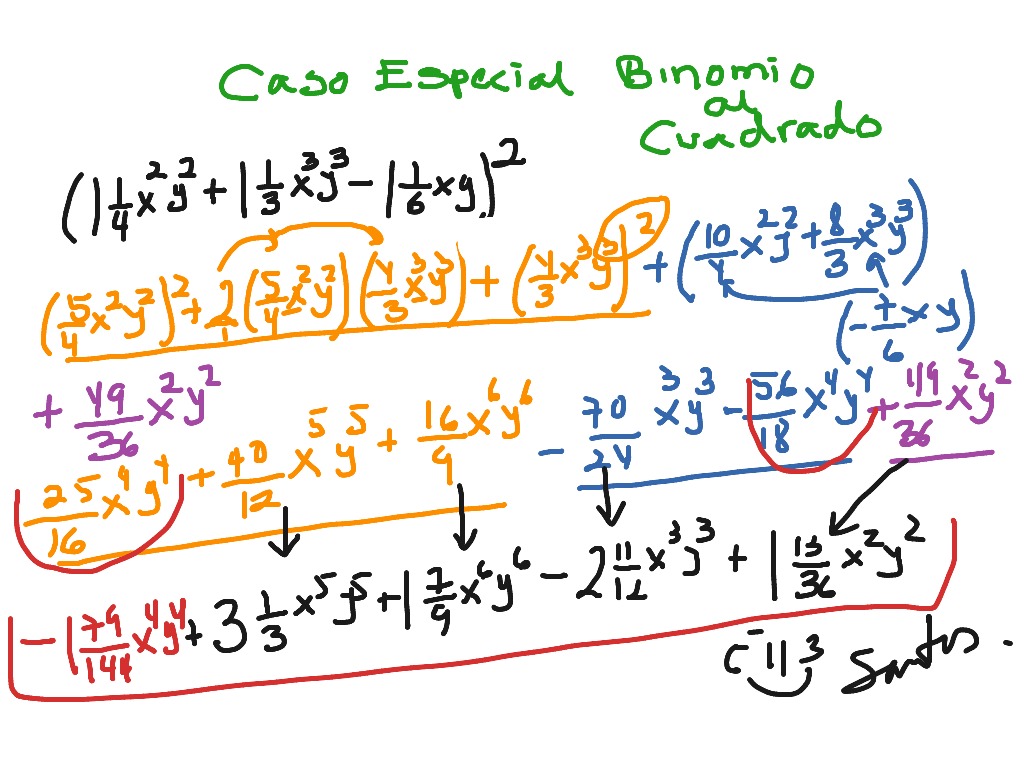 Caso Especial Binomio
al
Cuadrado
(1 1/4 x²y² + 1 1/3 x³y³ - 1 1/6 xy)²
(5/4 x²y²)² + 2/1 (5/4 x²y²)(4/3 x³y³) + (4/3 x³y³)² + (10/4 x²y² + 8/3 x³y³)
(-7/6 xy)
+ 49/36 x²y²
25/16 x⁴y⁴ + 40/12 x⁵y⁵ + 16/9 x⁶y⁶ - 70/24 x³y³ - 56/18 x⁴y⁴ + 49/36 x²y²
- 1 79/144 x⁴y⁴ + 3 1/3 x⁵y⁵ + 1 7/9 x⁶y⁶ - 2 11/12 x³y³ + 1 13/36 x²y²
Santos.